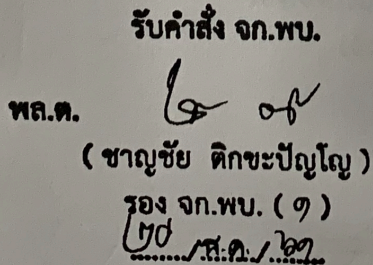 รับคำสั่ง จก.พบ.
พล.ต.
( ชาญชัย ติกขะปัญโญ )
รอง จก.พบ. ( ๑ )
/ส.ค./ ๖๑